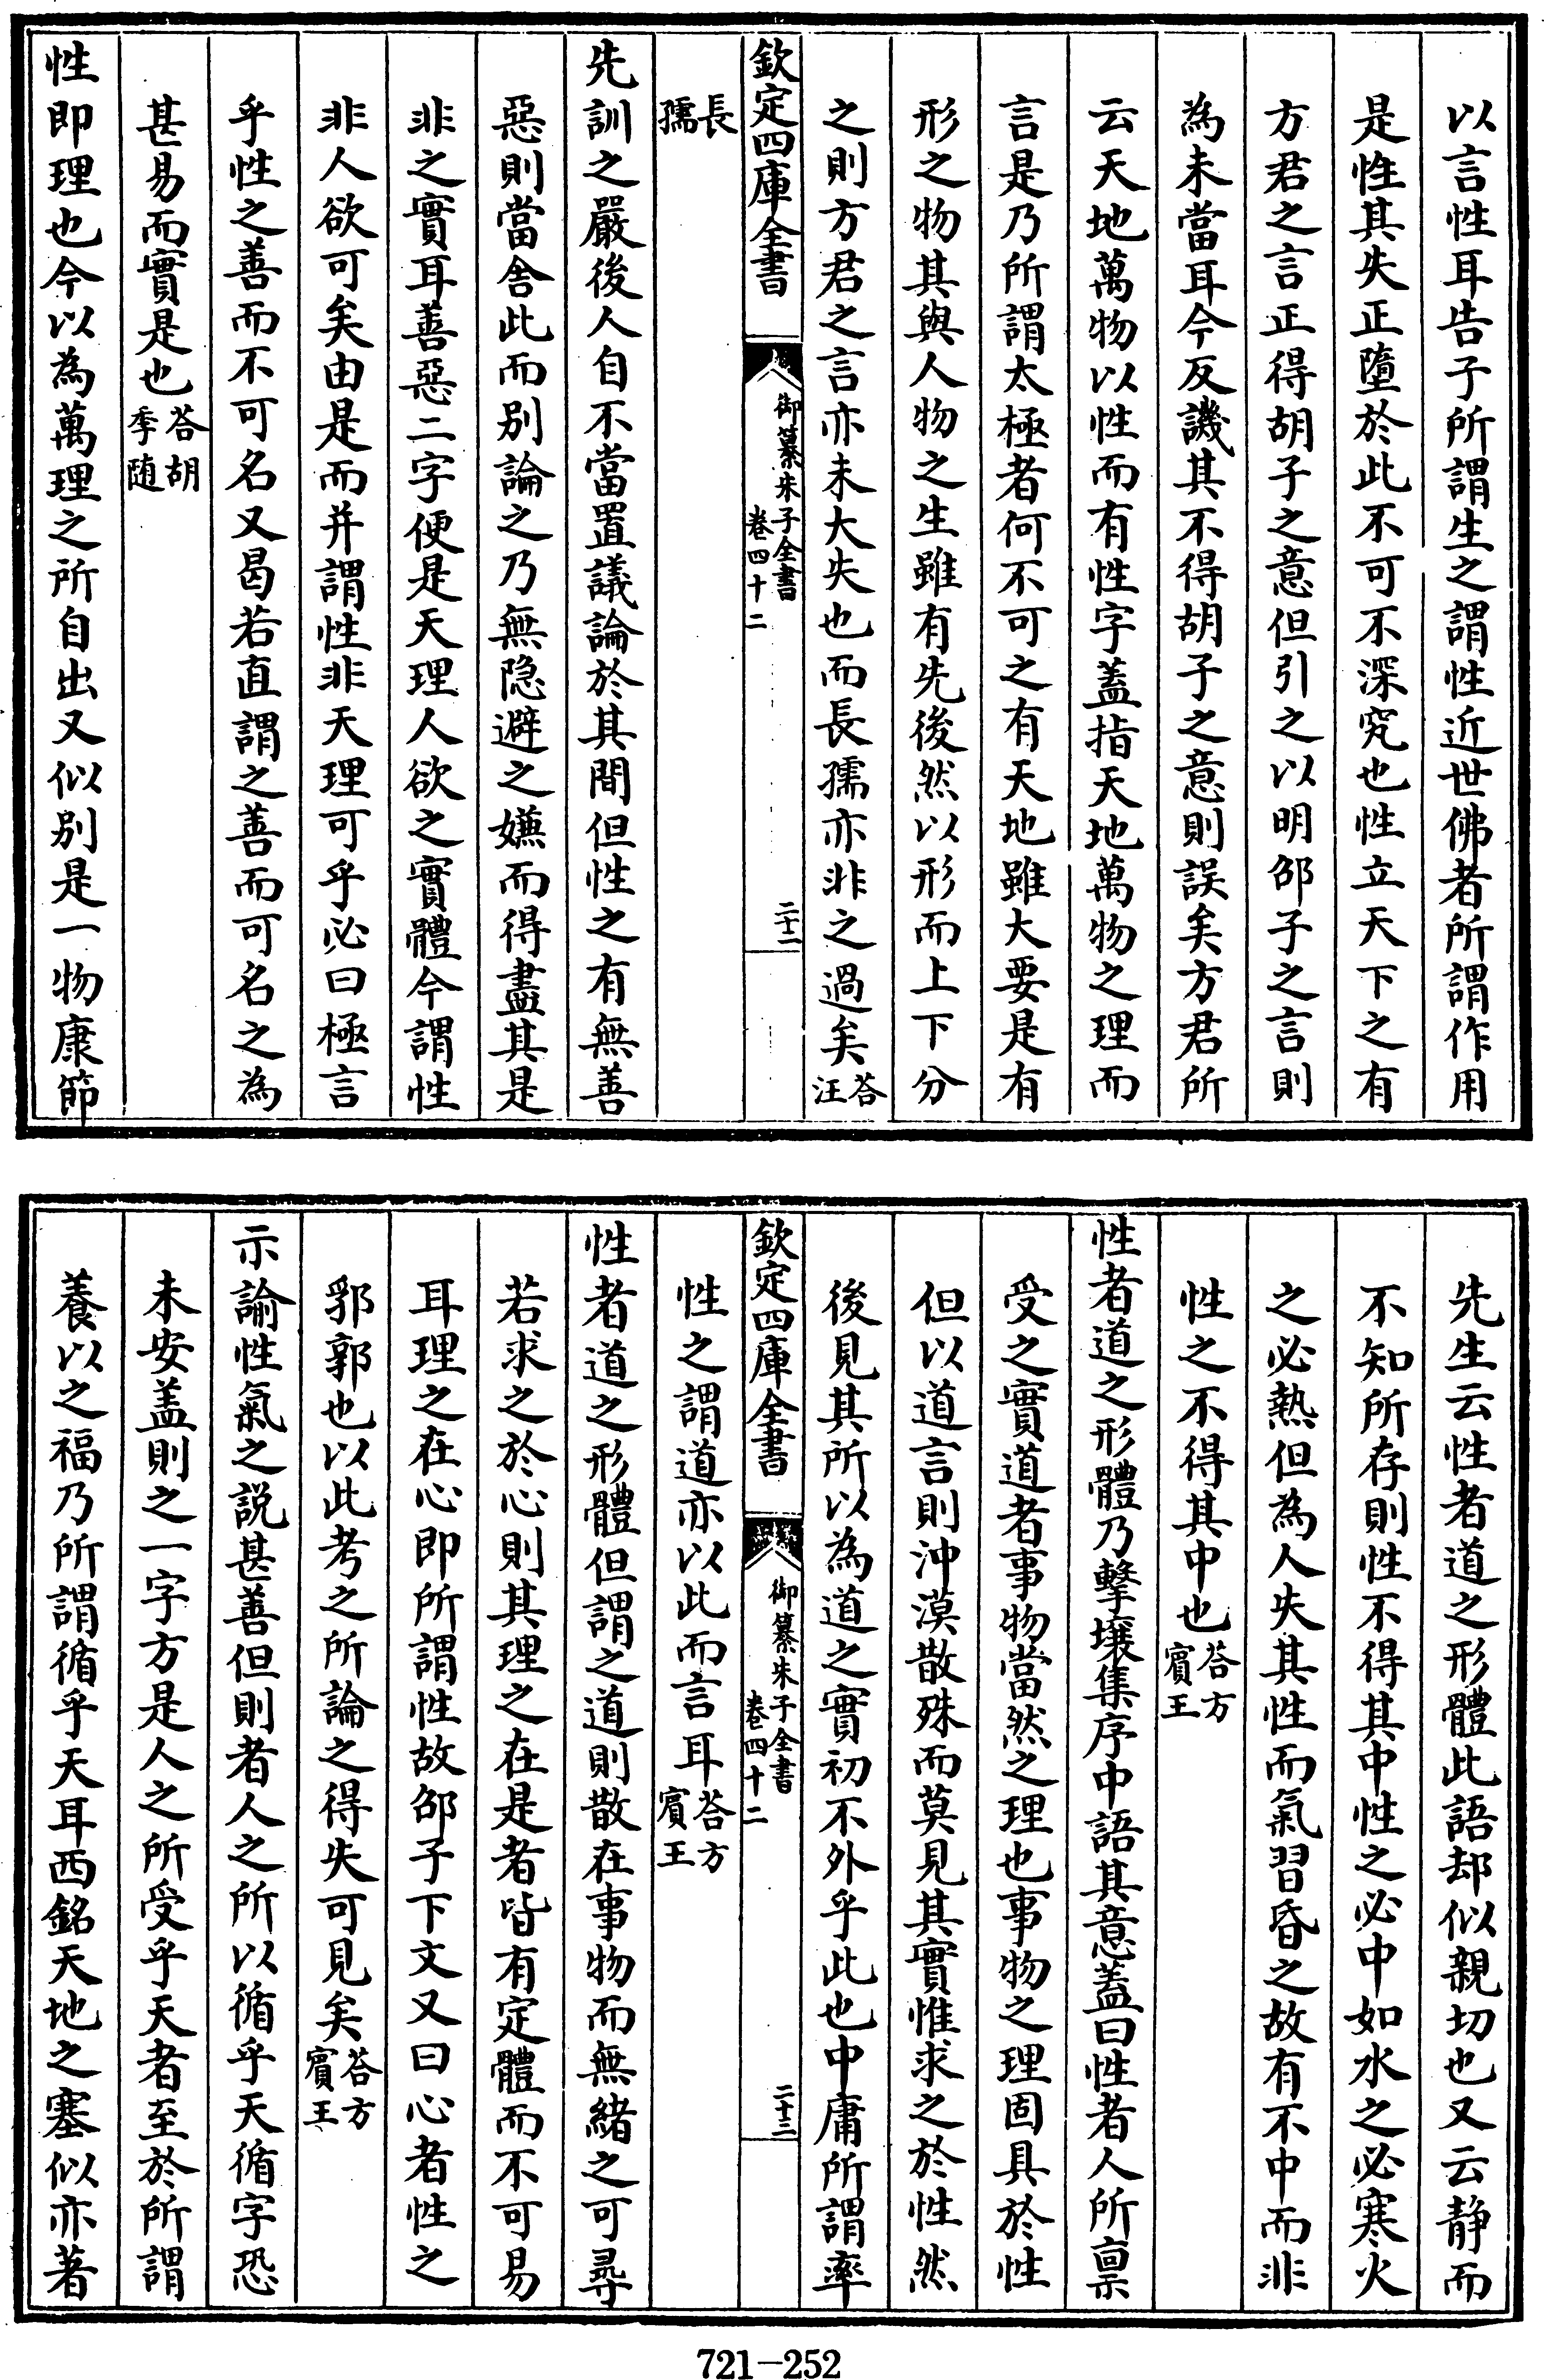 以言性耳告子所謂生之謂性近世佛者所謂作用
是性其失正墮於此不可不深究也性立天下之有
方君之言正得胡子之意但引之以明邵子之言則
為未當耳今反譏其不得胡子之意則誤矣方君所
云天地萬物以性而有性字蓋指天地萬物之理而
言是乃所謂太極者何不可之有天地雖大要是有
形之物其與人物之生雖有先後然以形而上下分
之則方君之言亦未大失也而長孺亦非之過矣答汪
長孺
欽定四庫全書
御纂朱子全書
卷四十二
二十二
先訓之嚴後人自不當置議論於其間但性之有無善
惡則當舍此而別論之乃無隐避之嫌而得盡其是
非之實耳善惡二字便是天理人欲之實體今謂性
非人欲可矣由是而并謂性非天理可乎必曰極言
乎性之善而不可名又曷若直謂之善而可名之為
甚易而實是也答胡季随
性即理也今以為萬理之所自出又似別是一物康節
先生云性者道之形體此語却似親切也又云静而
不知所存則性不得其中性之必中如水之必寒火
之必熱但為人失其性而氣習昏之故有不中而非
性之不得其中也答方賓王
性者道之形體乃擊壤集序中語其意蓋曰性者人所禀
受之實道者事物當然之理也事物之理固具於性
但以道言則沖漠散殊而莫見其實惟求之於性然
後見其所以為道之實初不外乎此也中庸所謂率
性之謂道亦以此而言耳答方賓王
欽定四庫全書
御纂朱子全書
卷四十二
二十三
性者道之形體但謂之道則散在事物而無緒之可尋
若求之於心則其理之在是者皆有定體而不可易
耳理之在心即所謂性故邵子下文又曰心者性之
郛郭也以此考之所論之得失可見矣答方賓王
示諭性氣之說甚善但則者人之所以循乎天循字恐
未安盖則之一字方是人之所受乎天者至於所謂
養以之福乃所謂循乎天耳西銘天地之塞似亦著
721-252